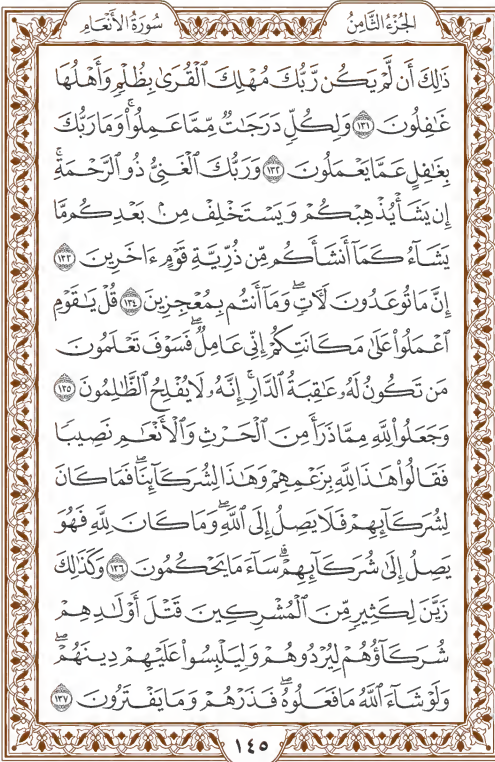 سُورَةُ الأَنْعَامِ
الجُزْءُ الثَّامِنُ
ذَٰلِكَ أَن لَّمْ يَكُن رَّبُّكَ مُهْلِكَ ٱلْقُرَىٰ بِظُلْمٍ وَأَهْلُهَا
غَٰفِلُونَ ١٣١ وَلِكُلٍّ دَرَجَٰتٌ مِّمَّا عَمِلُوا۟ ۚ وَمَا رَبُّكَ
بِغَٰفِلٍ عَمَّا يَعْمَلُونَ ١٣٢ وَرَبُّكَ ٱلْغَنِىُّ ذُو ٱلرَّحْمَةِ ۚ
إِن يَشَأْ يُذْهِبْكُمْ وَيَسْتَخْلِفْ مِنۢ بَعْدِكُم مَّا
يَشَآءُ كَمَآ أَنشَأَكُم مِّن ذُرِّيَّةِ قَوْمٍ ءَاخَرِينَ ١٣٣
إِنَّ مَا تُوعَدُونَ لَـَٔاتٍ ۖ وَمَآ أَنتُم بِمُعْجِزِينَ ١٣٤ قُلْ يَٰقَوْمِ
ٱعْمَلُوا۟ عَلَىٰ مَكَانَتِكُمْ إِنِّى عَامِلٌ ۖ فَسَوْفَ تَعْلَمُونَ
مَن تَكُونُ لَهُۥ عَٰقِبَةُ ٱلدَّارِ ۗ إِنَّهُۥ لَا يُفْلِحُ ٱلظَّٰلِمُونَ ١٣٥
وَجَعَلُوا۟ لِلَّهِ مِمَّا ذَرَأَ مِنَ ٱلْحَرْثِ وَٱلْأَنْعَٰمِ نَصِيبًا
فَقَالُوا۟ هَٰذَا لِلَّهِ بِزَعْمِهِمْ وَهَٰذَا لِشُرَكَآئِنَا ۖ فَمَا كَانَ
لِشُرَكَآئِهِمْ فَلَا يَصِلُ إِلَى ٱللَّهِ ۖ وَمَا كَانَ لِلَّهِ فَهُوَ
يَصِلُ إِلَىٰ شُرَكَآئِهِمْ ۗ سَآءَ مَا يَحْكُمُونَ ١٣٦ وَكَذَٰلِكَ
زَيَّنَ لِكَثِيرٍ مِّنَ ٱلْمُشْرِكِينَ قَتْلَ أَوْلَٰدِهِمْ
شُرَكَآؤُهُمْ لِيُرْدُوهُمْ وَلِيَلْبِسُوا۟ عَلَيْهِمْ دِينَهُمْ ۖ
وَلَوْ شَآءَ ٱللَّهُ مَا فَعَلُوهُ ۖ فَذَرْهُمْ وَمَا يَفْتَرُونَ ١٣٧
١٤٥